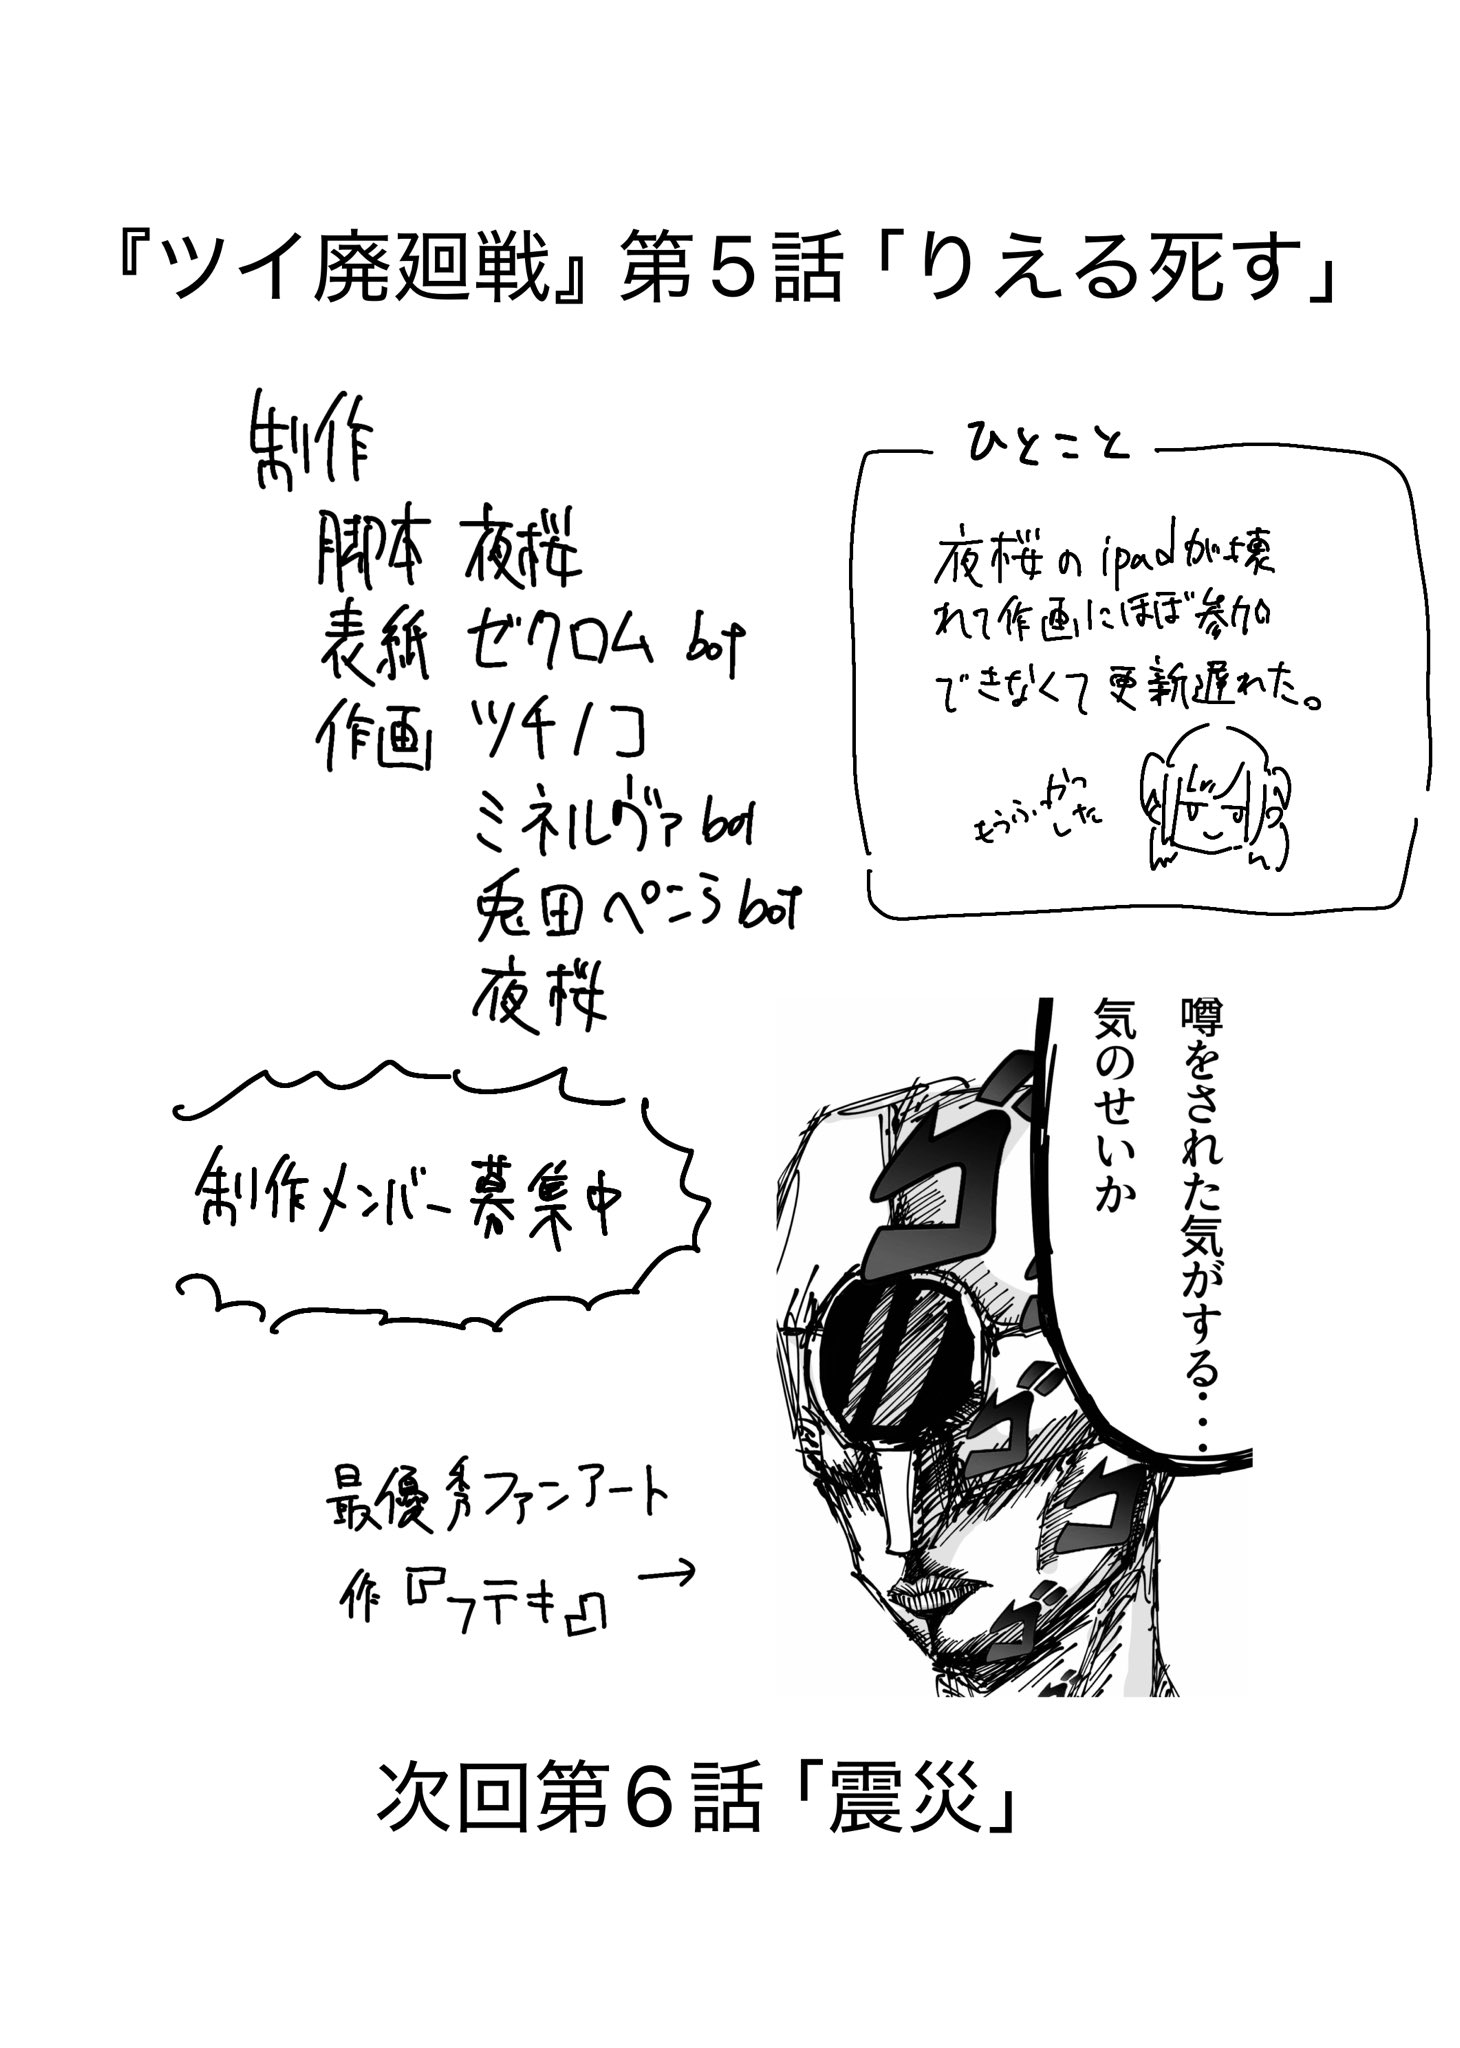 『ツイ廃廻戦』第5話「りえる死す」
制作
脚本 夜桜
表紙 ゼクロム bot
作画 ツチノコ
ミネルヴァ bot
兎田ぺこら bot
夜桜
ひとこと
夜桜の ipadが壊
れて作画にほぼ参加
できなくて更新遅れた。
もうふっかつ
した
制作メンバー募集中
噂をされた気がする・・・
気のせいか
ゴ
ゴ
ゴ
ゴ
最優秀ファンアート
作『フテキ』→
次回第6話「震災」